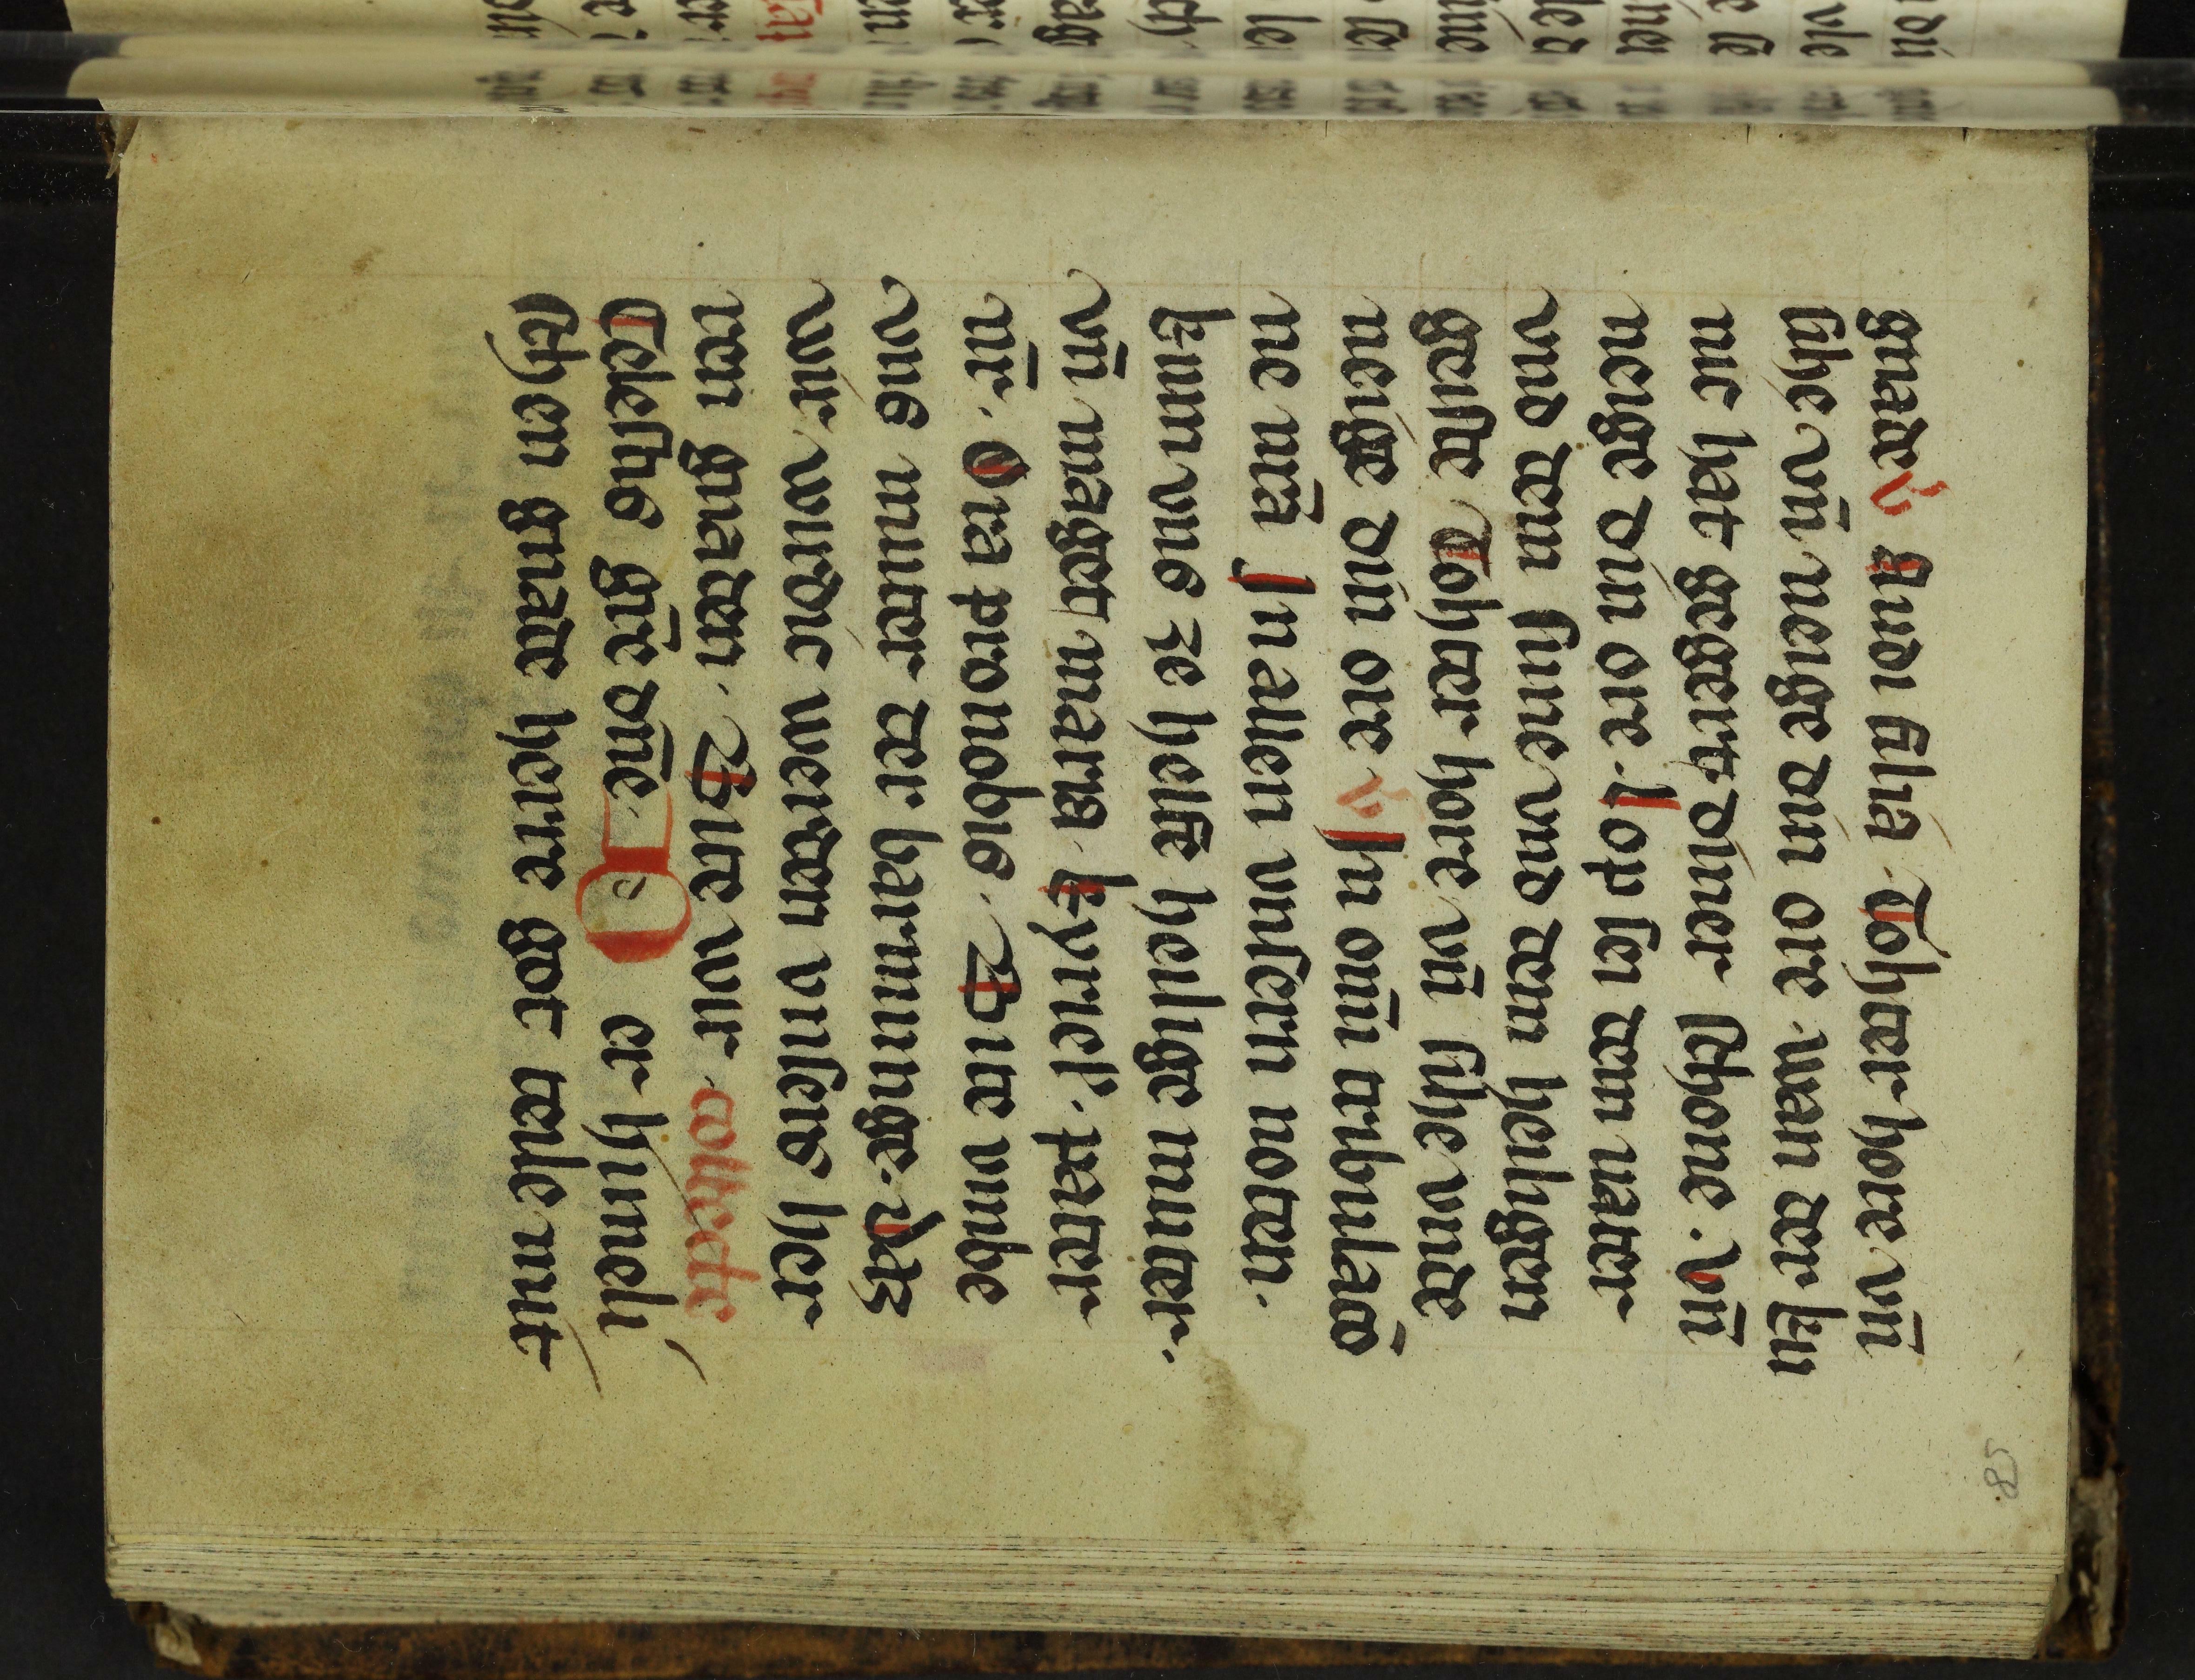 gnade v Audi filia. Tohter hore vn̄
sihe vn̄ neige din ore. wan der kü
nic hat gegert diner schone. Vn̄
neige din ore. Lop si dem uater
vnd dem sune vnd dem heiligen
geiste Tohter hore vn̄ sihe vnde
neige din ore v In om̄i tribulacō
ne nr̄a In allen vnsern noten.
kum vns ze helfe heilige muter.
vn̄ maget maria kyriel'. pater
nr̄. Ora pro nobis. Bite vmbe
vns muter der barmunge. Dz
wir wirdic werden vnsers her
ren gnaden. Bite wir collecte
Celestis gr̄e dn̄e. Der himeli
schen gnade herre got teile mit
85